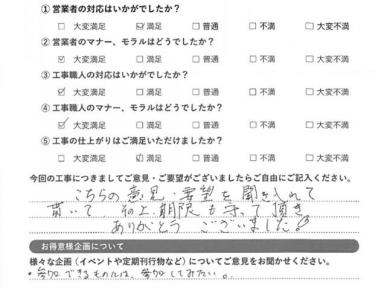 ① 営業者の対応はいかがでしたか?
□ 大変満足 ☑ 満足 □ 普通 □ 不満 □ 大変不満
② 営業者のマナー、モラルはどうでしたか?
☑ 大変満足 □ 満足 □ 普通 □ 不満 □ 大変不満
③ 工事職人の対応はいかがでしたか?
☑ 大変満足 □ 満足 □ 普通 □ 不満 □ 大変不満
④ 工事職人のマナー、モラルはどうでしたか?
☑ 大変満足 □ 満足 □ 普通 □ 不満 □ 大変不満
⑤ 工事の仕上がりはご満足いただけましたか?
□ 大変満足 ☑ 満足 □ 普通 □ 不満 □ 大変不満
今回の工事につきましてご意見・ご要望がございましたらご自由にご記入ください。
こちらの意見・要望を聞き入れて
貰いて、その上、期限も守って頂き
ありがとうございました
お得意様企画について
様々な企画(イベントや定期刊行物など)についてご意見をお聞かせください。
・参加できるものには、参加してみたい。